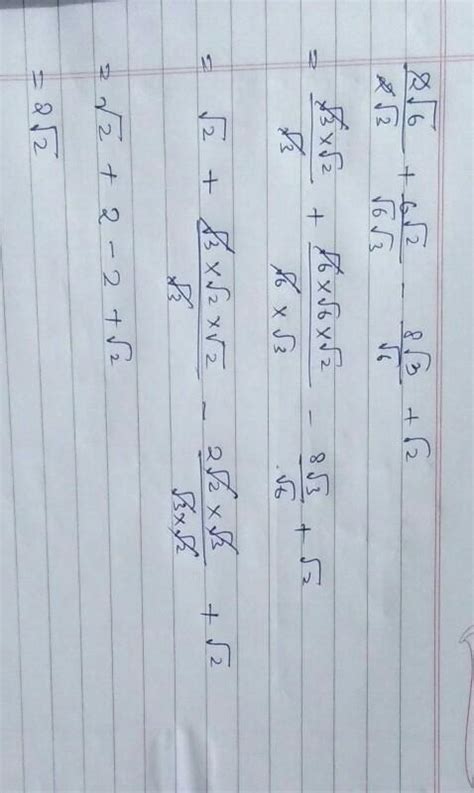 2√6/2√3 + 6√2/√6√3 - 8√3/√6 + √2
= √3×√2/√3 + √6×√6×√2/√6×√3 - 8√3/√6 + √2
= √2 + √3×√2×√2/√3 - 2√2×√3/√3×√2 + √2
= √2 + 2 - 2 + √2
= 2√2